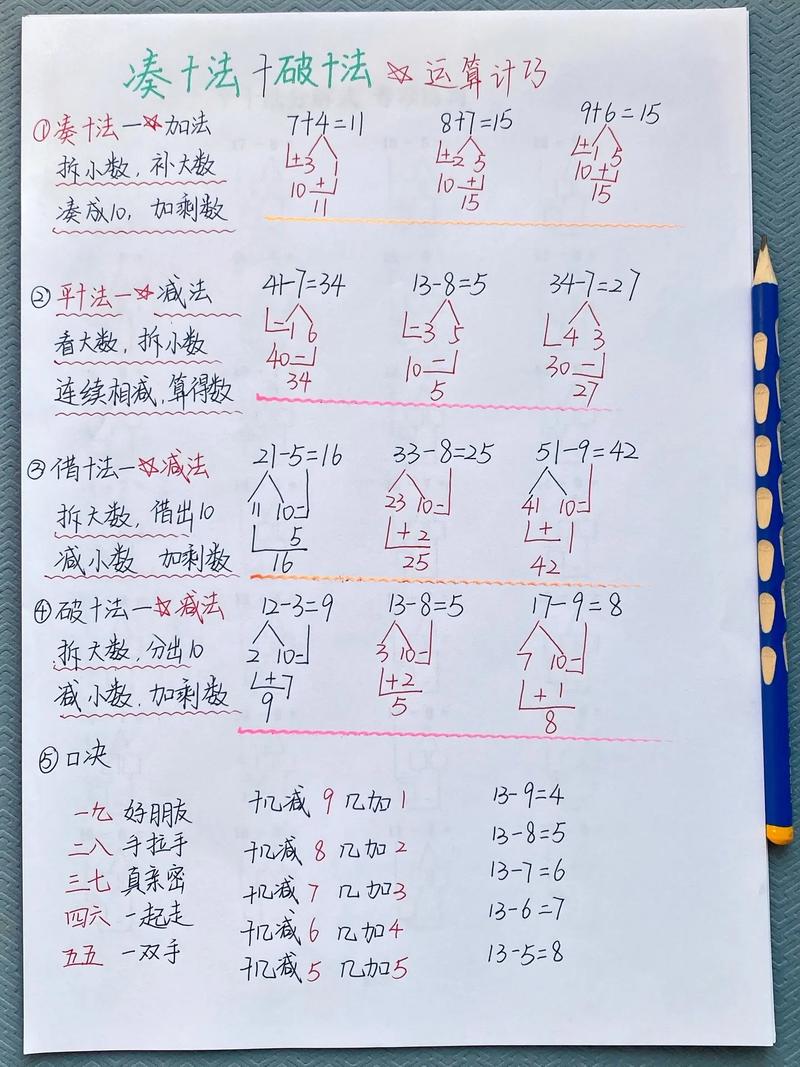 凑十法+破十法☆运算计巧
①凑十法—☆加法 7+4=11 8+7=15 9+6=15
拆小数，补大数 +3 1 +2 5 +1 5
凑成10，加剩数 10 + 10 + 10 +
11 15 15
②平十法—☆减法 41-7=34 13-8=5 34-7=27
看大数，拆小数 -1 6 -3 5 -4 3
连续相减，算得数 40- 10- 30-
34 5 27
③借十法—☆减法 21-5=16 33-8=25 51-9=42
拆大数，借出10 11 10- 23 10- 41 10-
减小数 加剩数 5 +2 +1
16 25 42
④破十法—☆减法 12-3=9 13-8=5 17-9=8
拆大数，分出10 2 10- 3 10- 7 10-
减小数，加剩数 +7 +2 +1
9 5 8
⑤口决
一九 好朋友 十几减 9 几加1 13-9=4
二八 手拉手 十几减 8 几加2 13-8=5
三七 真亲密 十几减 7 几加3 13-7=6
四六 一起走 十几减 6 几加4 13-6=7
五五 一双手 十几减 5 几加5 13-5=8